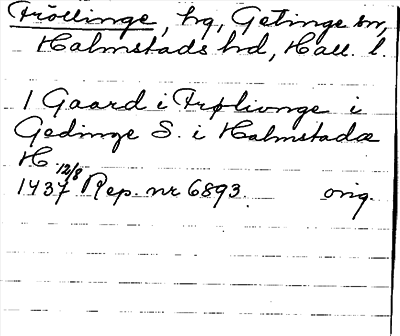 Fröllinge, hg, Getinge sn,
Halmstads hd, Hall. l.
1 Gaard i Frøllivnge i
Gedinge S. i Halmstadæ
H
12/8
1437 Rep. nr 6893. orig.